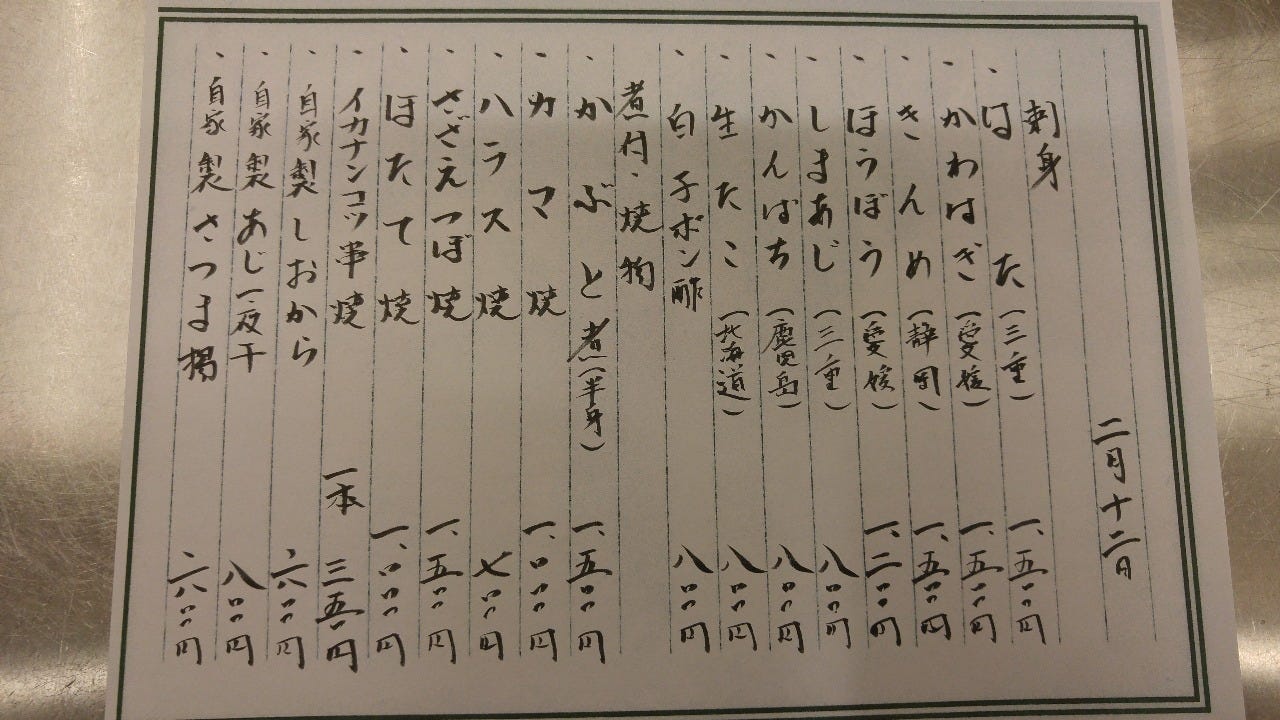 二月十二日
刺身
、はた(三重) 一、五〇〇円
、かわはぎ(愛媛) 一、五〇〇円
、きんめ(静岡) 一、五〇〇円
、ほうぼう(愛媛) 一、二〇〇円
、しまあじ(三重) 八〇〇円
、かんぱち(鹿児島) 八〇〇円
、生たこ(北海道) 八〇〇円
、白子ポン酢 八〇〇円
煮付・焼物
、かぶと煮(半身) 一、五〇〇円
、カマ焼 一、〇〇〇円
、ハラス焼 七〇〇円
、さざえつぼ焼 一、五〇〇円
、ほたて焼 一、〇〇〇円
、イカナンコツ串焼 一本 三五〇円
、自家製しおから 六〇〇円
、自家製あじ一夜干 八〇〇円
、自家製さつま揚 六〇〇円